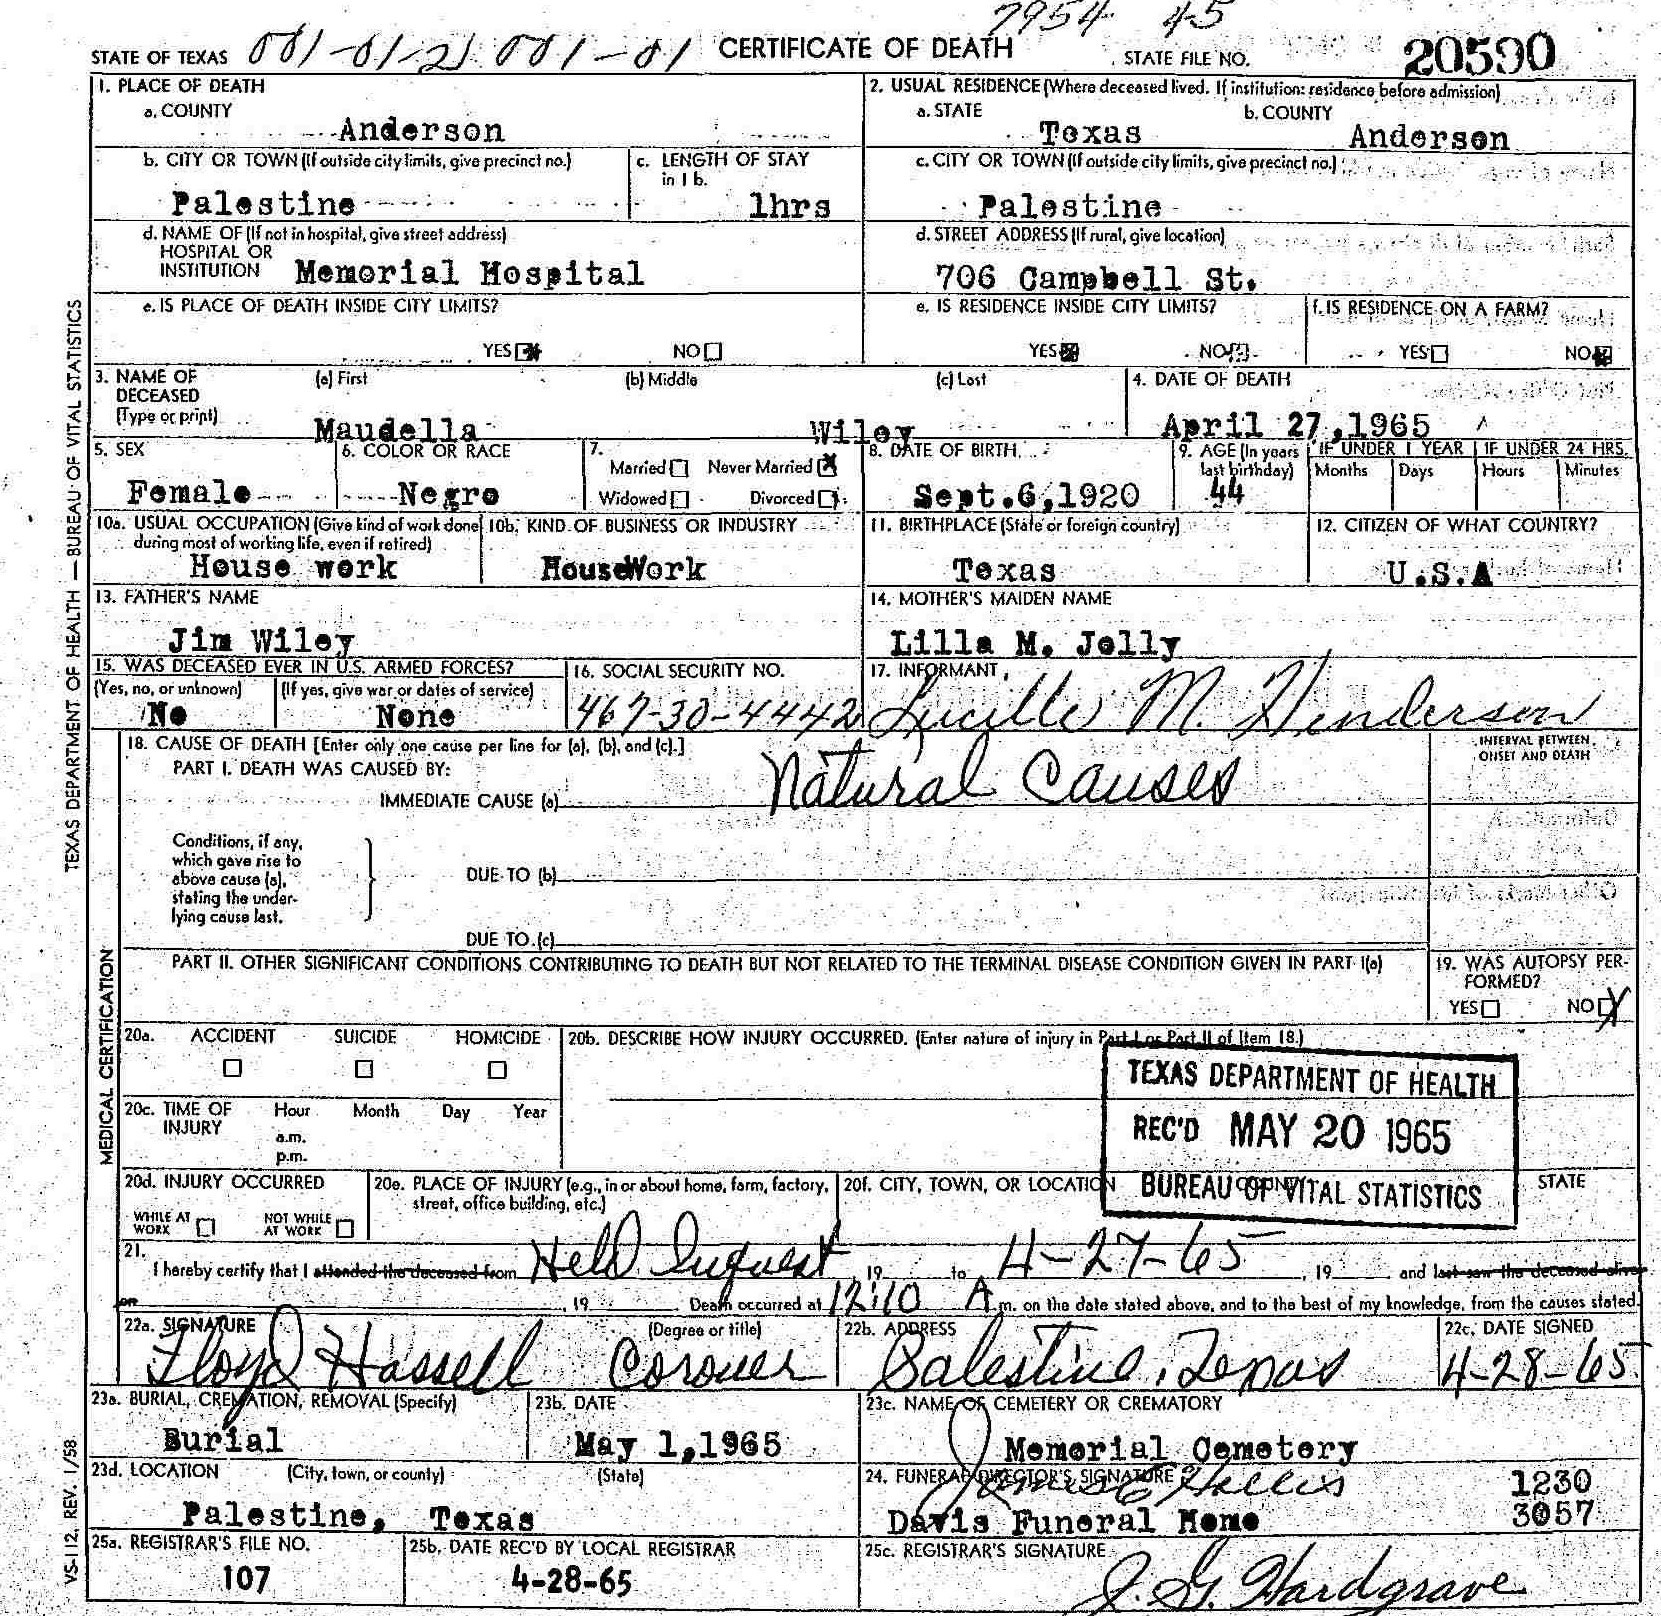 7954 45
STATE OF TEXAS 001-01-21 001-01 CERTIFICATE OF DEATH STATE FILE NO. 20590
1. PLACE OF DEATH
a. COUNTY
Anderson
2. USUAL RESIDENCE (Where deceased lived. If institution: residence before admission)
a. STATE b. COUNTY
Texas Anderson
b. CITY OR TOWN (If outside city limits, give precinct no.)
Palestine
c. LENGTH OF STAY
in 1 b.
1hrs
c. CITY OR TOWN (If outside city limits, give precinct no.)
Palestine
d. NAME OF (If not in hospital, give street address)
HOSPITAL OR
INSTITUTION Memorial Hospital
d. STREET ADDRESS (If rural, give location)
706 Campbell St.
e. IS PLACE OF DEATH INSIDE CITY LIMITS?
YES NO
e. IS RESIDENCE INSIDE CITY LIMITS?
YES NO
f. IS RESIDENCE ON A FARM?
YES NO
3. NAME OF
DECEASED
(Type or print)
(a) First (b) Middle (c) Last
Maudella Wiley
4. DATE OF DEATH
April 27,1965
5. SEX
Female
6. COLOR OR RACE
Negro
7.
Married Never Married X
Widowed Divorced
8. DATE OF BIRTH
Sept.6,1920
9. AGE (In years
last birthday)
44
IF UNDER 1 YEAR IF UNDER 24 HRS.
Months Days Hours Minutes
10a. USUAL OCCUPATION (Give kind of work done
during most of working life, even if retired)
House work
10b. KIND OF BUSINESS OR INDUSTRY
HouseWork
11. BIRTHPLACE (State or foreign country)
Texas
12. CITIZEN OF WHAT COUNTRY?
U.S.A
13. FATHER'S NAME
Jim Wiley
14. MOTHER'S MAIDEN NAME
Lilla M. Jolly
15. WAS DECEASED EVER IN U.S. ARMED FORCES?
(Yes, no, or unknown) (If yes, give war or dates of service)
No None
16. SOCIAL SECURITY NO.
467-30-4442
17. INFORMANT
Lucille M. Henderson
18. CAUSE OF DEATH [Enter only one cause per line for (a), (b), and (c).]
PART I. DEATH WAS CAUSED BY:
IMMEDIATE CAUSE (a) Natural Causes
INTERVAL BETWEEN
ONSET AND DEATH
Conditions, if any,
which gave rise to
above cause (a),
stating the under-
lying cause last.
DUE TO (b)
DUE TO (c)
PART II. OTHER SIGNIFICANT CONDITIONS CONTRIBUTING TO DEATH BUT NOT RELATED TO THE TERMINAL DISEASE CONDITION GIVEN IN PART I(a)
19. WAS AUTOPSY PER-
FORMED?
YES NO X
20a. ACCIDENT SUICIDE HOMICIDE
20b. DESCRIBE HOW INJURY OCCURRED. (Enter nature of injury in Part I or Part II of Item 18.)
20c. TIME OF
INJURY
Hour Month Day Year
a.m.
p.m.
TEXAS DEPARTMENT OF HEALTH
REC'D MAY 20 1965
BUREAU OF VITAL STATISTICS
20d. INJURY OCCURRED
WHILE AT
WORK
NOT WHILE
AT WORK
20e. PLACE OF INJURY (e.g., in or about home, farm, factory,
street, office building, etc.)
20f. CITY, TOWN, OR LOCATION COUNTY STATE
21.
I hereby certify that I attended the deceased from Held Inquest 19 to 4-27-65, 19 and last saw the deceased alive
on , 19 Death occurred at 12:10 A.m. on the date stated above, and to the best of my knowledge, from the causes stated.
22a. SIGNATURE (Degree or title)
Floyd Hassell Coroner
22b. ADDRESS
Palestine, Texas
22c. DATE SIGNED
4-28-65
23a. BURIAL, CREMATION, REMOVAL (Specify)
Burial
23b. DATE
May 1,1965
23c. NAME OF CEMETERY OR CREMATORY
Memorial Cemetery
23d. LOCATION (City, town, or county) (State)
Palestine, Texas
24. FUNERAL DIRECTOR'S SIGNATURE
James E Hollis 1230
Davis Funeral Home 3057
25a. REGISTRAR'S FILE NO.
107
25b. DATE REC'D BY LOCAL REGISTRAR
4-28-65
25c. REGISTRAR'S SIGNATURE
J. G. Hardgrave
TEXAS DEPARTMENT OF HEALTH — BUREAU OF VITAL STATISTICS
MEDICAL CERTIFICATION
VS-112, REV. 1/58